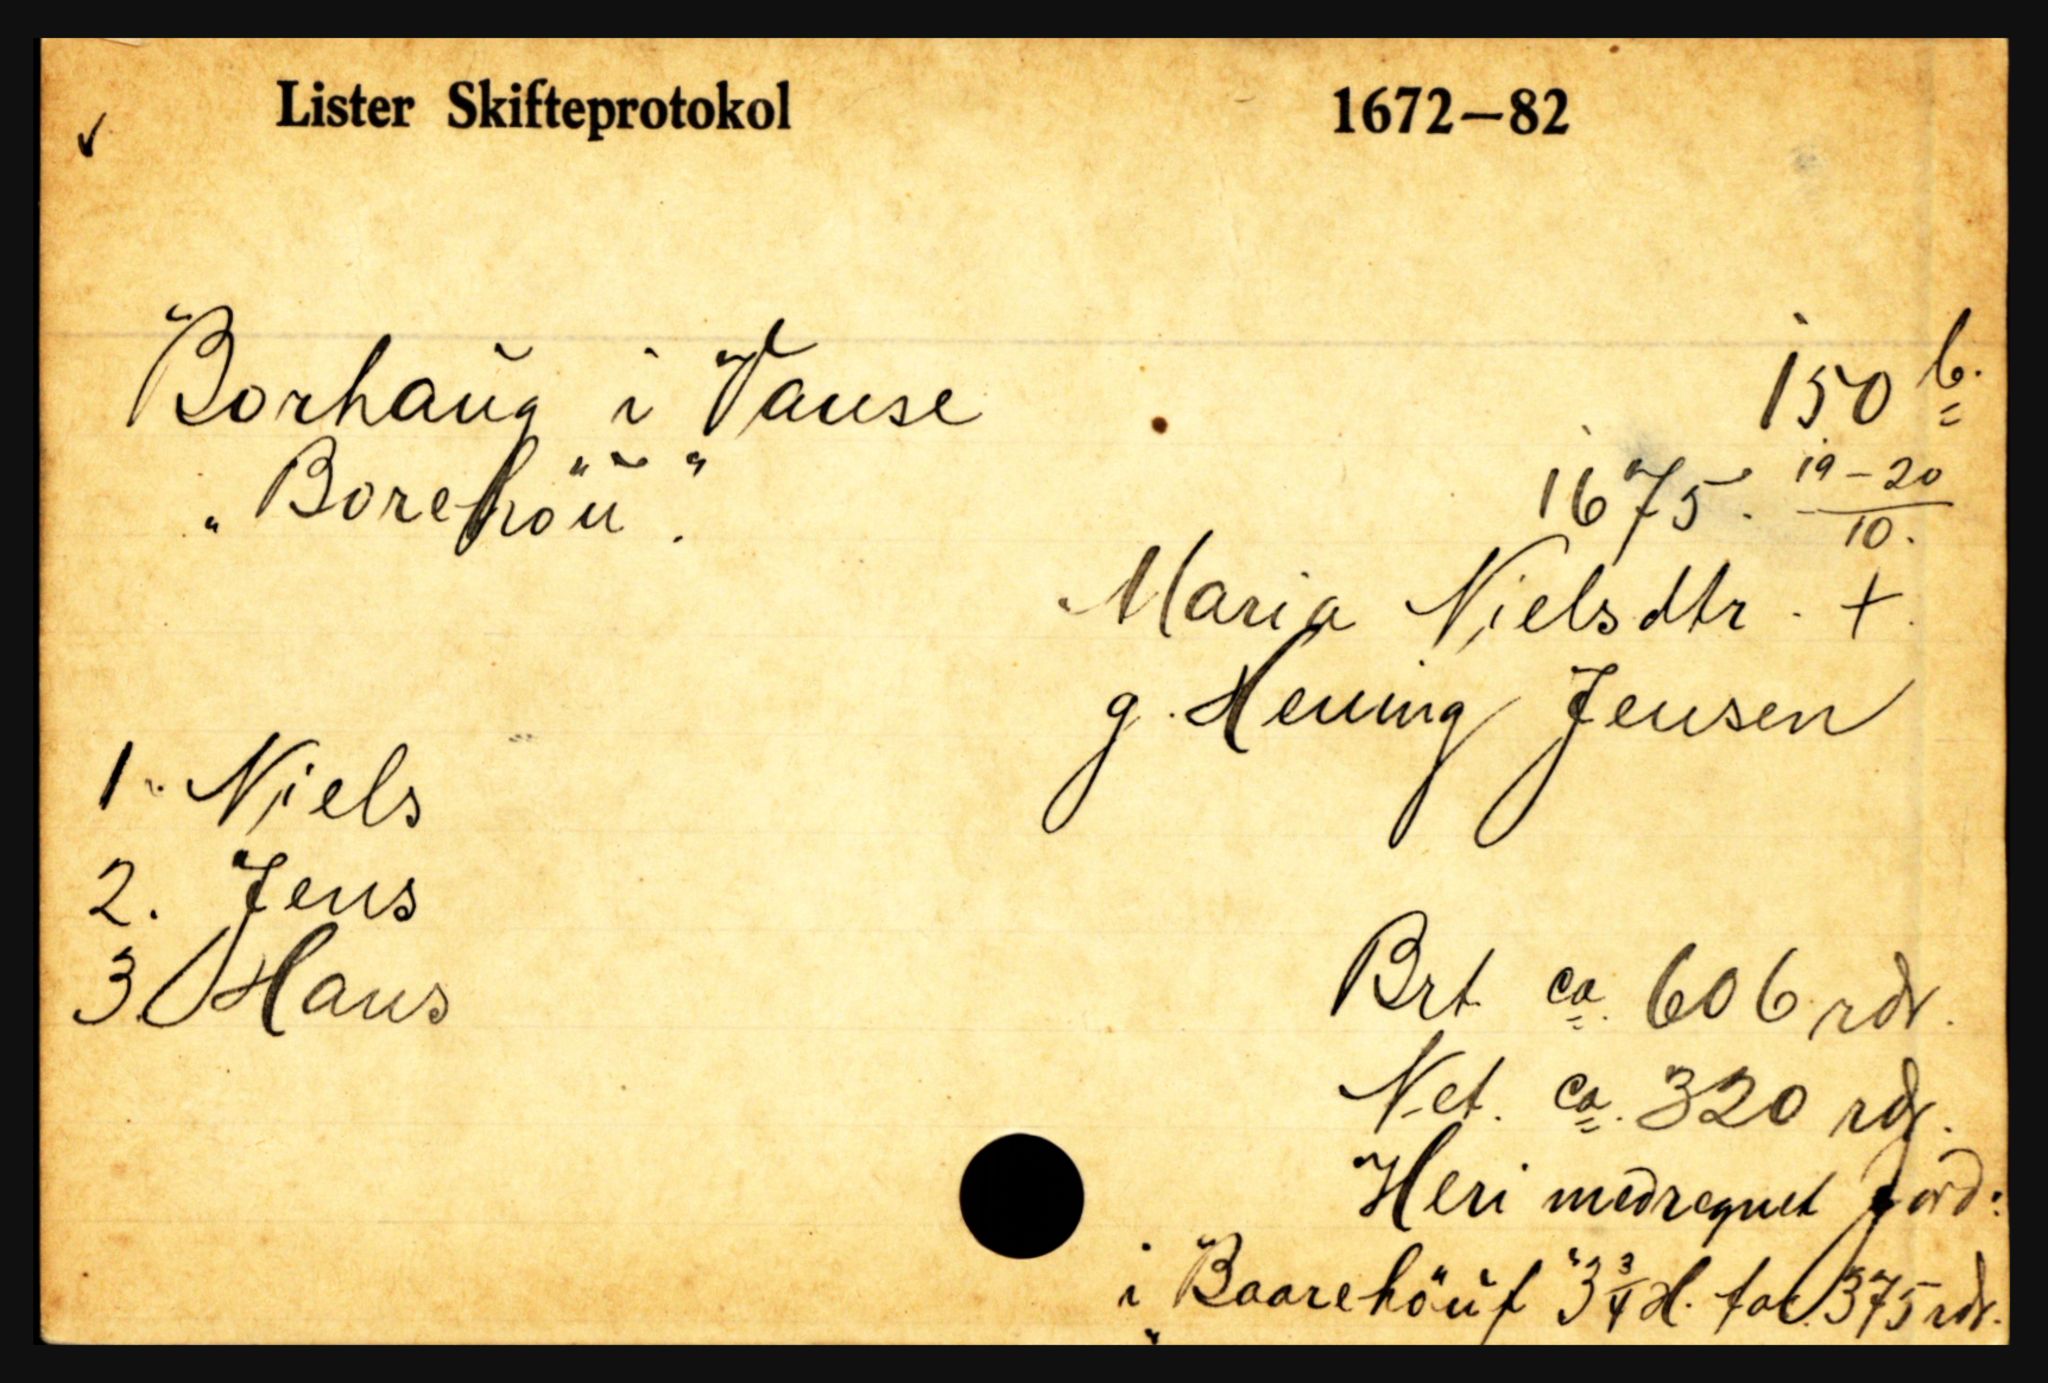 Lister Skifteprotokol 1672-82
Borhaug i Vanse 150 b.
"Borehöu". 1675. 19-20/10.
Maria Nielsdtr. +.
g. Hening Jensen
1. Niels
2. Jens
3. Hans
Brt. ca. 606 rdr.
Net. ca. 320 rdr.
Heri medregnet jord:
i "Baarehöuf" 3 3/4 H. for 375 rdr.